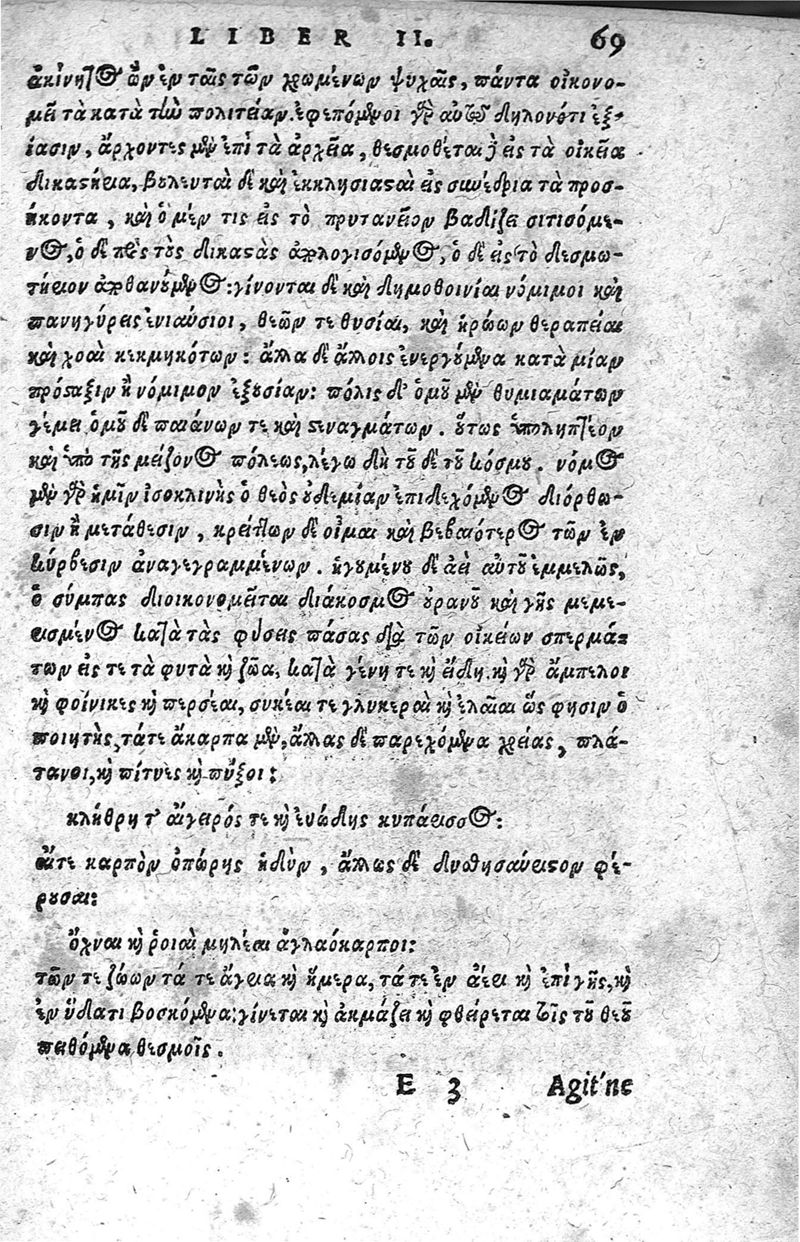 LIBER II. 69
ἀκίνητος ὢν ἐν ταῖς τῶν χρωμένων ψυχαῖς, πάντα οἰκονο-
μεῖ τὰ κατὰ τὴν πολιτείαν. ἐφεπόμενοι γὰρ αὐτῷ δηλονότι ἐξ-
ίασιν, ἄρχοντες μὲν ἐπὶ τὰ ἀρχεῖα, θεσμοθέται δὲ εἰς τὰ οἰκεῖα
δικαστήρια, βουλευταὶ δὲ καὶ ἐκκλησιασταὶ εἰς συνέδρια τὰ προσ-
ήκοντα, καὶ ὁ μέν τις εἰς τὸ πρυτανεῖον βαδίζει σιτισόμε-
νος, ὁ δὲ πρὸς τοὺς δικαστὰς ἀπολογισόμενος, ὁ δὲ εἰς τὸ δεσμω-
τήριον ἀποθανούμενος: γίνονται δὲ καὶ δημοθοινίαι νόμιμοι καὶ
πανηγύρεις ἐνιαύσιοι, θεῶν τε θυσίαι, καὶ ἡρώων θεραπεῖαι
καὶ χοαὶ κεκμηκότων: ἄλλα δὲ ἄλλοις ἐνεργούμενα κατὰ μίαν
πρόσταξιν ἢ νόμιμον ἐξουσίαν: πόλις δ' ὁμοῦ μὲν θυμιαμάτων
γέμει ὁμοῦ δὲ παιάνων τε καὶ στεναγμάτων. οὕτως ὑποληπτέον
καὶ ὑπὸ τῆς μείζονος πόλεως, λέγω δὴ τοῦ δὲ τοῦ κόσμου. νόμος
μὲν γὰρ ἡμῖν ἰσοκλινὴς ὁ θεὸς οὐδεμίαν ἐπιδεχόμενος διόρθω-
σιν ἢ μετάθεσιν, κρείττων δὲ οἶμαι καὶ βεβαιότερος τῶν ἐν
κύρβεσιν ἀναγεγραμμένων. ἡγουμένου δὲ ἀεὶ αὐτοῦ ἐμμελῶς,
ὁ σύμπας διοικονομεῖται διάκοσμος οὐρανοῦ καὶ γῆς μεμε-
ρισμένος κατὰ τὰς φύσεις πάσας διὰ τῶν οἰκείων σπερμά-
των εἰς τε τὰ φυτὰ καὶ ζῶα, κατὰ γένη τε καὶ εἴδη. καὶ γὰρ ἄμπελοι
καὶ φοίνικες καὶ περσέαι, συκέαι τε γλυκεραὶ καὶ ἐλαῖαι ὥς φησιν ὁ
ποιητὴς, τά τε ἄκαρπα μὲν, ἄλλας δὲ παρεχόμενα χρείας, πλά-
τανοι, καὶ πίτυες καὶ πύξοι:
κλήθρη τ' αἴγειρός τε καὶ εὐώδης κυπάρισσος:
αἵ τε καρπὸν ὀπώρης ἡδὺν, ἄλλως δὲ δυσθησαύριστον φέ-
ρουσαι:
ὄχναι καὶ ῥοιαὶ μηλέαι ἀγλαόκαρποι:
τῶν τε ζώων τά τε ἄγρια καὶ ἥμερα, τά τε ἐν ἀέρι καὶ ἐπὶ γῆς, καὶ
ἐν ὕδατι βοσκόμενα: γίνεται καὶ ἀκμάζει καὶ φθείρεται τοῖς τοῦ θεοῦ
πειθόμενα θεσμοῖς.
E 3 Agit'ne